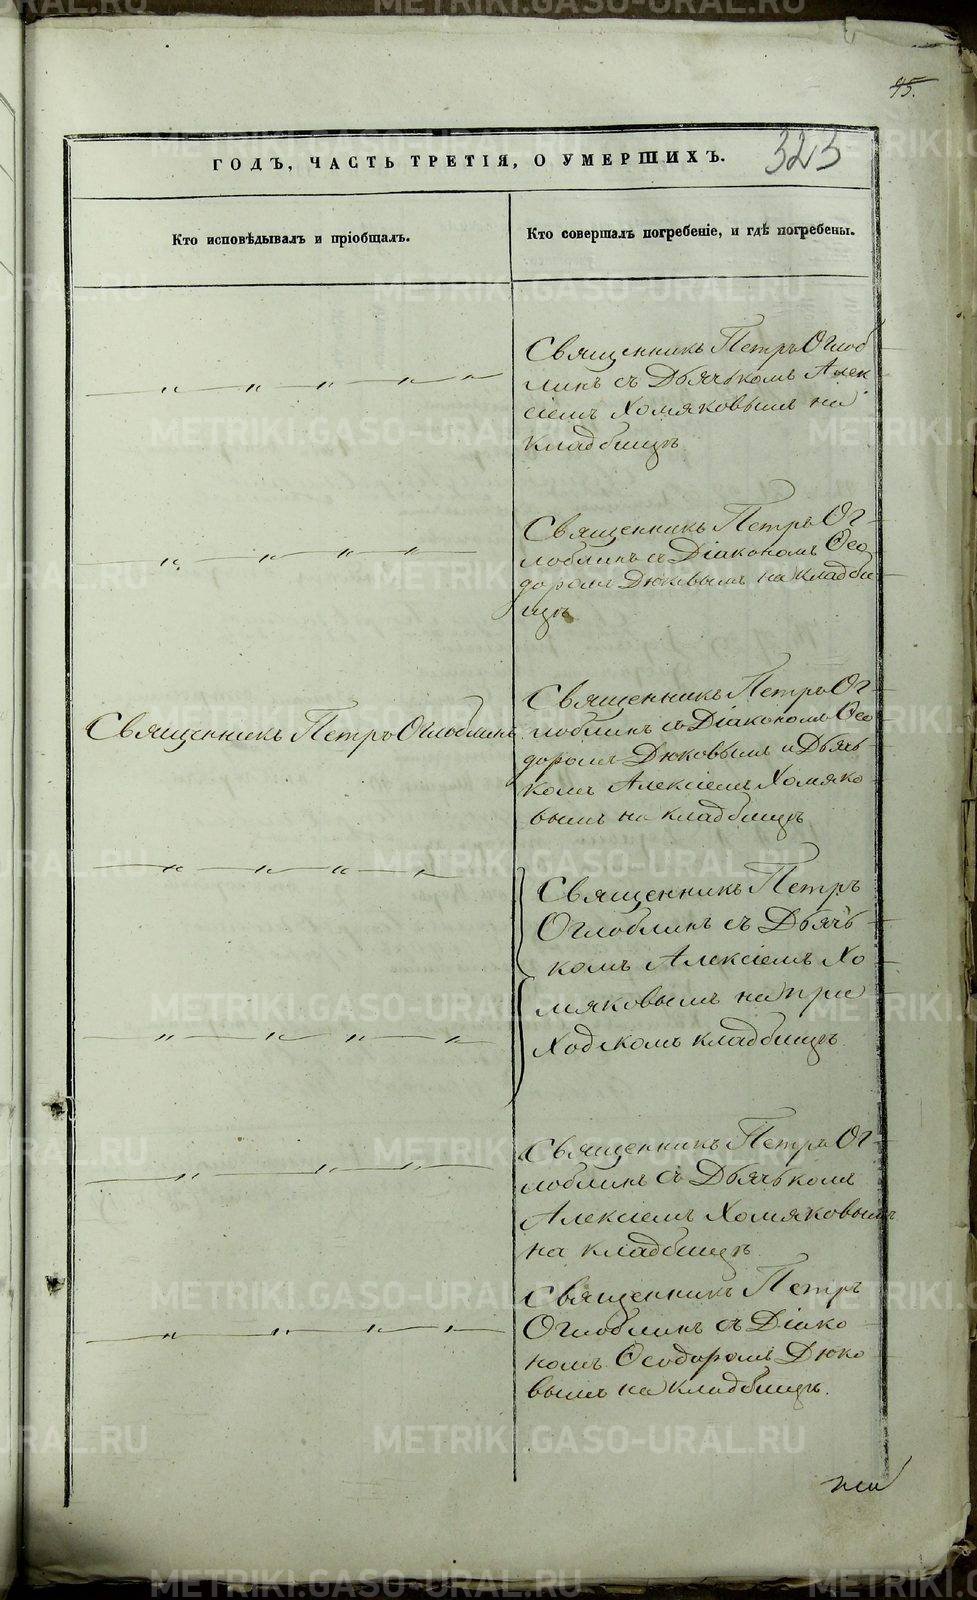 45.
323
ГОДЪ, ЧАСТЬ ТРЕТІЯ, О УМЕРШИХЪ.
Кто исповѣдывалъ и пріобщалъ.
Кто совершалъ погребеніе, и гдѣ погребены.
Священникъ Петръ Оглоб
линъ съ Дьячькомъ Алек
сіемъ Хомяковымъ на
кладбищѣ
Священникъ Петръ Ог-
лоблинъ съ Діакономъ Ѳео
доромъ Дюковымъ на кладби
щѣ
Священникъ Петръ Оглоблинъ
Священникъ Петръ Ог-
лоблинъ съ Діакономъ Ѳео
доромъ Дюковымъ и Дьячь
комъ Алексіемъ Хомяко
вымъ на кладбищѣ
Священникъ Петръ
Оглоблинъ съ Дьячь-
комъ Алексіемъ Хо
мяковымъ на при
ходскомъ кладбищѣ.
Священникъ Петръ Ог-
лоблинъ съ Дьячькомъ
Алексіемъ Хомяковымъ
на кладбищѣ
Священникъ Петръ
Оглоблинъ съ Діако
номъ Ѳеодоромъ Дюко
вымъ на кладбищѣ.
METRIKI.GASO-URAL.RU